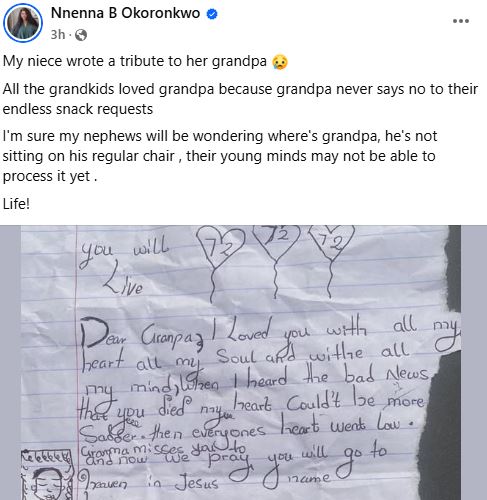 Nnenna B Okoronkwo
3h ·
My niece wrote a tribute to her grandpa 😢
All the grandkids loved grandpa because grandpa never says no to their
endless snack requests
I'm sure my nephews will be wondering where's grandpa, he's not
sitting on his regular chair , their young minds may not be able to
process it yet .
Life!
you will 72 72 72
Live
Dear Granpa, I Loved you with all my
heart all my Soul and withe all
my mind, When I heard the bad News
that you died my heart Could't be more
Sadder. then everyones heart went low.
Granma misses you to
and now we pray you will go to
heaven in Jesus name